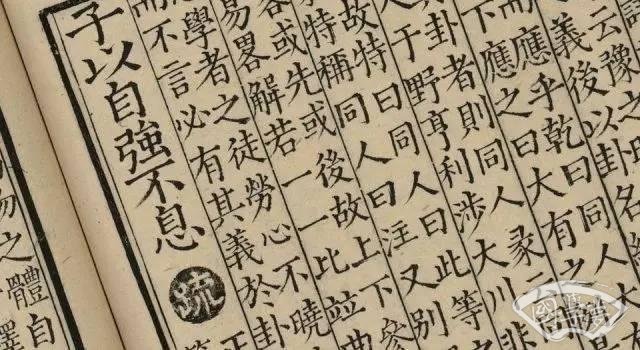 云豫
義後以卦名
而應乎乾曰同人
下應之曰大有之
卦者則同人彖云
人于野亨利涉大川非
故特曰同人曰此等之
特稱同人曰注又別
畧或先或後故上下參
易畧解若一一比並曲
學者之徒勞心不曉
而不言必有其義於卦
子以自強不息 疏
之體自